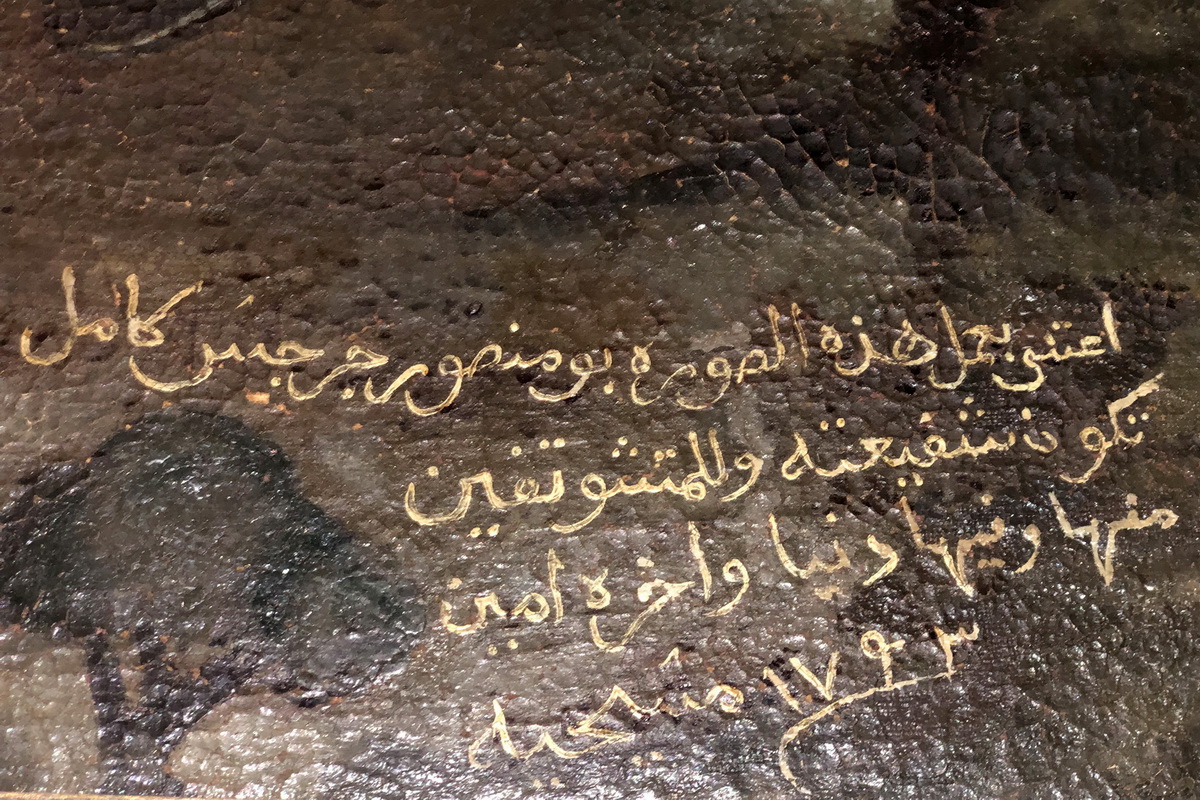 اعتنى بعمل هذه الصوره بو منصور جرجيس كامل
تكون شفيعته وللمتشوقين
منها وفيها دنيا واخره امين
١٧٩٣ مسيحيه